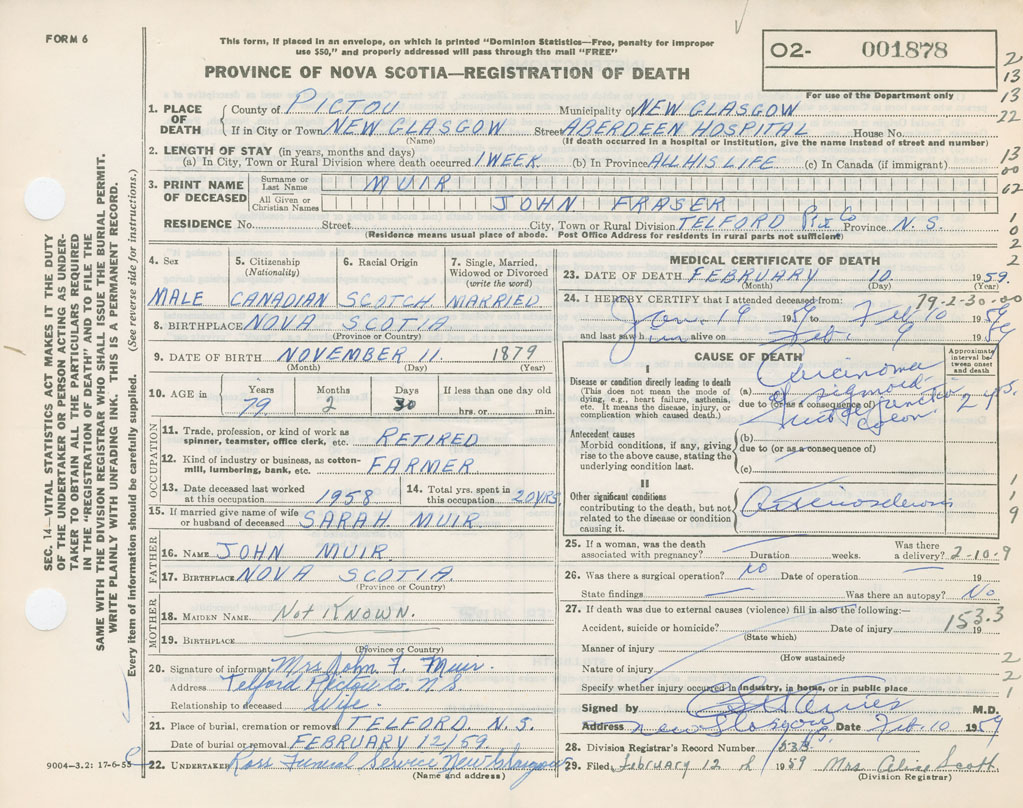 FORM 6
This form, if placed in an envelope, on which is printed "Dominion Statistics—Free, penalty for improper
use $50," and properly addressed will pass through the mail "FREE"
PROVINCE OF NOVA SCOTIA—REGISTRATION OF DEATH
02- 001878
For use of the Department only
2
13
13
22
13
00
62
1
0
2
2
1. PLACE OF DEATH
County of PICTOU Municipality of NEW GLASGOW
If in City or Town NEW GLASGOW Street ABERDEEN HOSPITAL House No.
(Name) (If death occurred in a hospital or institution, give the name instead of street and number)
2. LENGTH OF STAY (in years, months and days)
(a) In City, Town or Rural Division where death occurred 1 WEEK (b) In Province ALL HIS LIFE (c) In Canada (if immigrant)
3. PRINT NAME OF DECEASED
Surname or Last Name MUIR
All Given or Christian Names JOHN FRASER
RESIDENCE No. Street City, Town or Rural Division TELFORD Pix Co Province N.S.
(Residence means usual place of abode. Post Office Address for residents in rural parts not sufficient)
4. Sex
MALE
5. Citizenship
(Nationality)
CANADIAN
6. Racial Origin
SCOTCH
7. Single, Married,
Widowed or Divorced
(write the word)
MARRIED
8. BIRTHPLACE NOVA SCOTIA
(Province or Country)
9. DATE OF BIRTH NOVEMBER 11. 1879
(Month) (Day) (Year)
10. AGE in
Years Months Days If less than one day old
79 2 30 hrs. or min.
OCCUPATION
11. Trade, profession, or kind of work as
spinner, teamster, office clerk, etc. RETIRED
12. Kind of industry or business, as cotton-
mill, lumbering, bank, etc. FARMER
13. Date deceased last worked
at this occupation 1958
14. Total yrs. spent in
this occupation 20 YRS.
15. If married give name of wife
or husband of deceased SARAH MUIR
FATHER
16. NAME JOHN MUIR
17. BIRTHPLACE NOVA SCOTIA
(Province or Country)
MOTHER
18. MAIDEN NAME Not KNOWN.
19. BIRTHPLACE
(Province or Country)
20. Signature of informant Mrs John F. Muir.
Address Telford Pictou Co. N.S
Relationship to deceased Wife.
21. Place of burial, cremation or removal TELFORD. N.S.
Date of burial or removal FEBRUARY 12/59.
22. UNDERTAKER Ross Funeral Service New Glasgow
(Name and address)
9004—3.2: 17-6-55
MEDICAL CERTIFICATE OF DEATH
23. DATE OF DEATH FEBRUARY 10 1959.
(Month) (Day) (Year)
24. I HEREBY CERTIFY that I attended deceased from: 79-2-30-00
Jan. 19 1959 to Feb 10 1959
and last saw him alive on Feb. 9 1959
CAUSE OF DEATH
Approximate interval between onset and death
I
Disease or condition directly leading to death
(This does not mean the mode of
dying, e.g., heart failure, asthenia,
etc. It means the disease, injury, or
complication which caused death.)
(a) Carcinoma
of sigmoid-
due to (or as a consequence of) junction 2 yrs.
colon
Antecedent causes
Morbid conditions, if any, giving
rise to the above cause, stating the
underlying condition last.
(b)
due to (or as a consequence of)
(c)
II
Other significant conditions
contributing to the death, but not
related to the disease or condition
causing it.
Arteriosclerosis
1
1
9
25. If a woman, was the death
associated with pregnancy? Duration weeks. Was there
a delivery? 2-10-9
26. Was there a surgical operation? no Date of operation 19
State findings Was there an autopsy? No
27. If death was due to external causes (violence) fill in also the following:—
Accident, suicide or homicide? Date of injury 19
153.3
(State which)
Manner of injury
(How sustained)
Nature of injury
Specify whether injury occurred in industry, in home, or in public place
2
2
1
Signed by M.D.
Address New Glasgow Date Feb. 10 1959
28. Division Registrar's Record Number
29. Filed February 12 1959 Mrs Scott
(Division Registrar)
SEC. 14—VITAL STATISTICS ACT MAKES IT THE DUTY
OF THE UNDERTAKER OR PERSON ACTING AS UNDER-
TAKER TO OBTAIN ALL THE PARTICULARS REQUIRED
IN THE "REGISTRATION OF DEATH" AND TO FILE THE
SAME WITH THE DIVISION REGISTRAR WHO SHALL ISSUE THE BURIAL PERMIT.
WRITE PLAINLY WITH UNFADING INK. THIS IS A PERMANENT RECORD.
Every item of information should be carefully supplied. (See reverse side for instructions.)